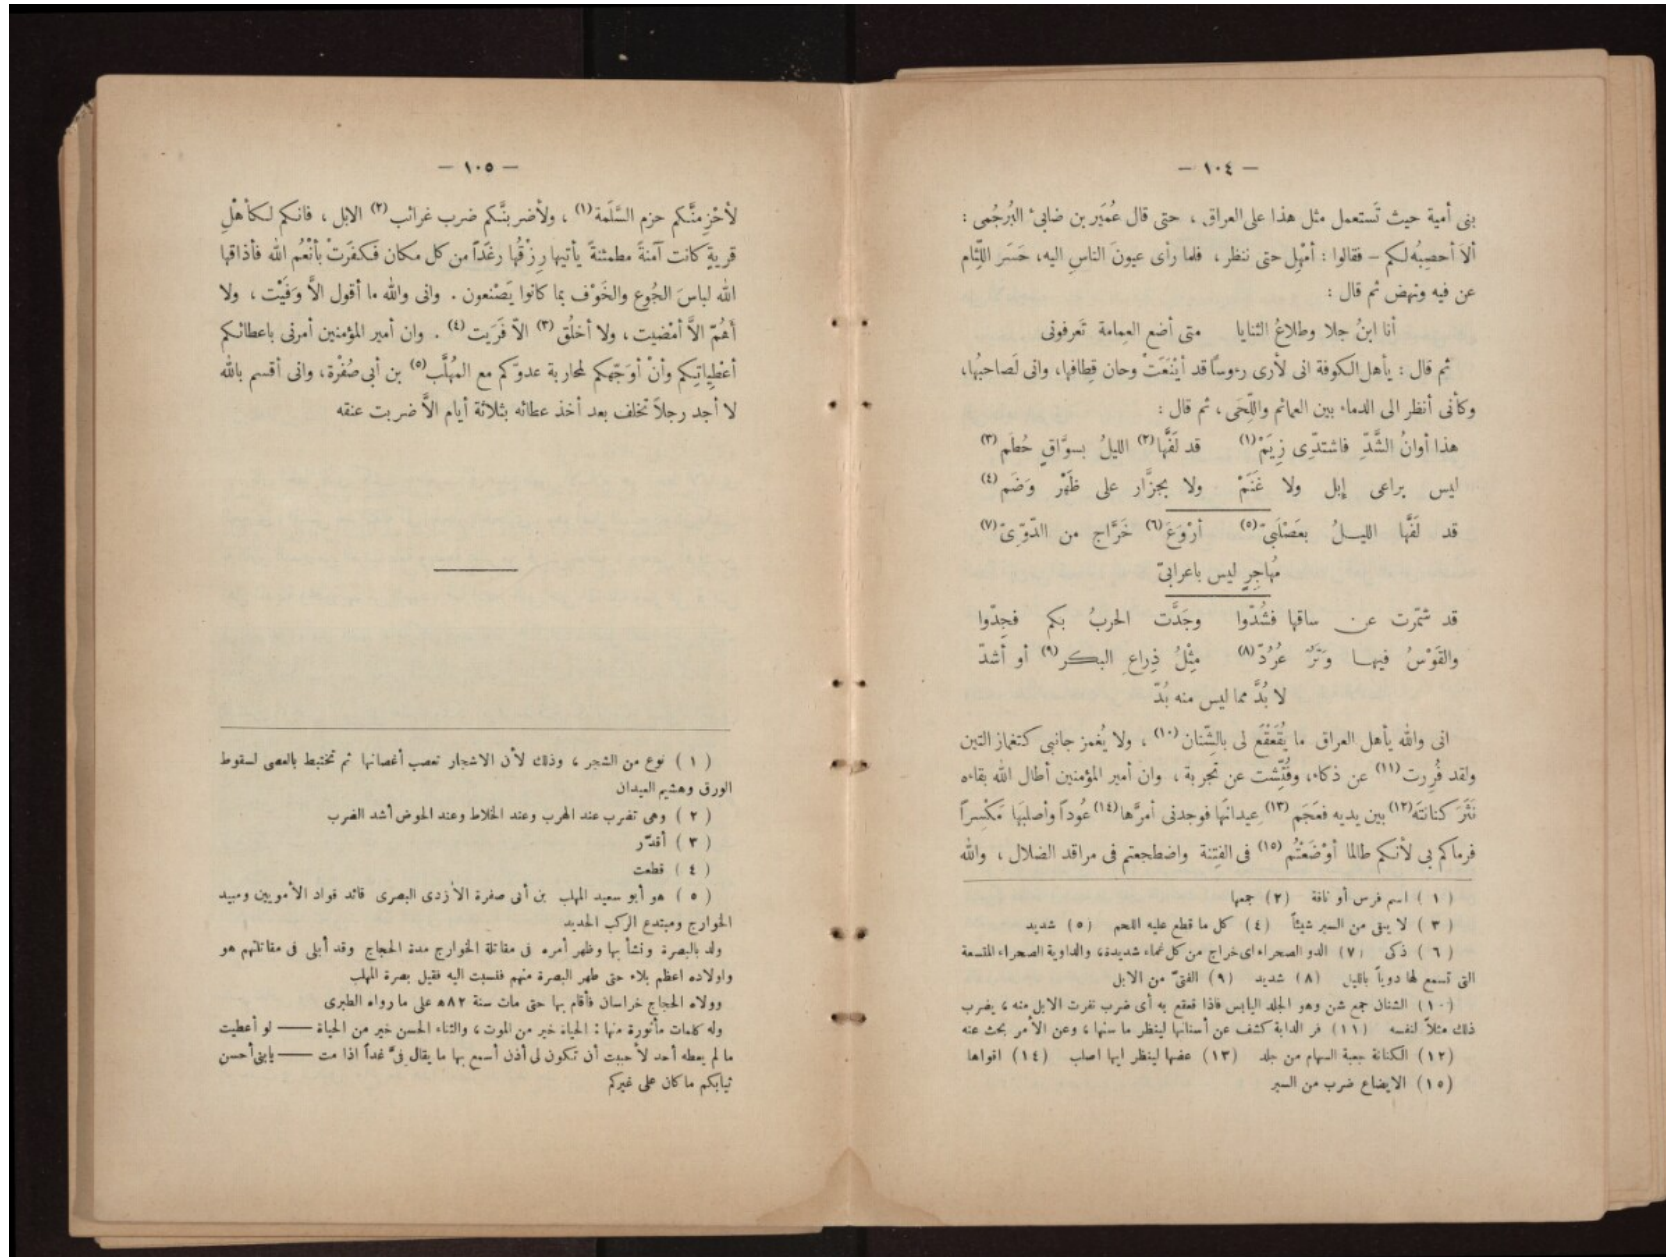 — ١٠٤ —
بنى أمية حيث تَستعمل مثل هذا على العراق ، حتى قال عُمَير بن ضابىء البُرجُمى :
ألاَ أحصِبُه لكم — فقالوا : أمْهِل حتى ننظر ، فلما رأى عيونَ الناسِ اليه، حَسَر اللِّثام
عن فيه ونهض ثم قال :
أنا ابنُ جلا وطلاعُ الثنايا متى أضع العِمامة تَعرفونى
ثم قال : يأهل الكوفة انى لأرى رءوسًا قد أيْنَعَتْ وحان قِطافها، وانى لَصاحبُها،
وكأنى أنظر الى الدماء بين العمائم واللِّحَى ، ثم قال :
هذا أوانُ الشَّدِّ فاشتدِّى زِيَمْ (١) قد لَفَّها (٢) الليلُ بسوَّاقٍ حُطَم (٣)
ليس براعى إبل ولا غَنَمْ ولا بجزَّار على ظَهْر وَضَم (٤)
قد لَفَّها الليـلُ بعَصْلَبىّ (٥) أرْوَعَ (٦) خَرَّاج من الدّوِّىّ (٧)
مُهاجِرٍ ليس باعرابىّ
قد شمّرت عن ساقها فشُدّوا وجَدَّت الحربُ بكم فجِدّوا
والقَوْسُ فيهـا وَتَرٌ عُرُدّ (٨) مِثْلُ ذِراعِ البكر (٩) أو أشدّ
لا بُدَّ مما ليس منه بُدّ
انى والله يأهل العراق ما يُقَعْقَع لى بالشِّنان (١٠) ، ولا يُغمز جانبى كتغماز التين
ولقد فُرِرت (١١) عن ذكاء، وفُتِّشت عن تجربة ، وان أمير المؤمنين أطال الله بقاءه
نَثَرَ كنانتَه (١٢) بين يديه فعَجَم (١٣) عِيدانَها فوجدنى أمرَّها (١٤) عُوداً وأصلبَها مَكْسِراً
فرماكم بى لأنكم طالما أوْضَعْتُم (١٥) فى الفِتنة واضطجعتم فى مراقد الضلال ، والله
( ١ ) اسم فرس أو ناقة ( ٢ ) جمعها
( ٣ ) لا يبقى من السير شيئاً ( ٤ ) كل ما قطع عليه اللحم ( ٥ ) شديد
( ٦ ) ذكى ( ٧ ) الدو الصحراء اى خراج من كل غماء شديدة، والداوية الصحراء المتسعة
التى تسمع لها دوياً بالليل ( ٨ ) شديد ( ٩ ) الفتىّ من الابل
(١٠) الشنان جمع شن وهو الجلد اليابس فاذا قعقع به أى ضرب نفرت الابل منه ، يضرب
ذلك مثلاً لنفسه (١١) فر الدابة كشف عن أسنانها لينظر ما سنها ، وعن الأمر بحث عنه
(١٢) الكنانة جعبة السهام من جلد (١٣) عضها لينظر ايها اصلب (١٤) اقواها
(١٥) الايضاع ضرب من السير
— ١٠٥ —
لأحْزِمنَّكم حزم السَّلَمة (١) ، ولأضربنَّكم ضرب غرائب (٢) الابل ، فانكم لكأهْلِ
قريةٍ كانت آمنةً مطمئنةً يأتيها رِزْقُها رغَداً من كل مكان فكفَرَتْ بأنْعُم الله فأذاقها
الله لباسَ الجُوع والخَوْف بما كانوا يَصْنعون . وانى والله ما أقول الاَّ وَفَيْت ، ولا
أهُمّ الاَّ أمْضيت ، ولا أخلُق (٣) الاّ فَرَيت (٤) . وان أمير المؤمنين أمرنى باعطائكم
أعْطِياتِكم وأنْ أوَجّهكم لمحاربة عدوّكم مع المُهلَّب (٥) بن أبى صُفْرة، وانى أقسم بالله
لا أجد رجلاً تخلف بعد أخذ عطائه بثلاثة أيام الاَّ ضربت عنقه
( ١ ) نوع من الشجر ، وذلك لأن الاشجار تعصب أغصانها ثم تختبط بالعصى لسقوط
الورق وهشيم العيدان
( ٢ ) وهى تضرب عند الهرب وعند الخلاط وعند الحوض أشد الضرب
( ٣ ) أقدّر
( ٤ ) قطعت
( ٥ ) هو أبو سعيد المهلب بن أبى صفرة الأزدى البصرى قائد قواد الأمويين ومبيد
الخوارج ومبتدع الركب الحديد
ولد بالبصرة ونشأ بها وظهر أمره فى مقاتلة الخوارج مدة الحجاج وقد أبلى فى مقاتلتهم هو
واولاده اعظم بلاء حتى طهر البصرة منهم فنسبت اليه فقيل بصرة المهلب
وولاه الحجاج خراسان فأقام بها حتى مات سنة ٨٢ ه على ما رواه الطبرى
وله كلمات مأثورة منها : الحياة خير من الموت ، والثناء الحسن خير من الحياة —— لو أعطيت
ما لم يعطه أحد لأحببت أن تكون لى أذن أسمع بها ما يقال فىَّ غداً اذا مت —— يابنى أحسن
ثيابكم ما كان على غيركم